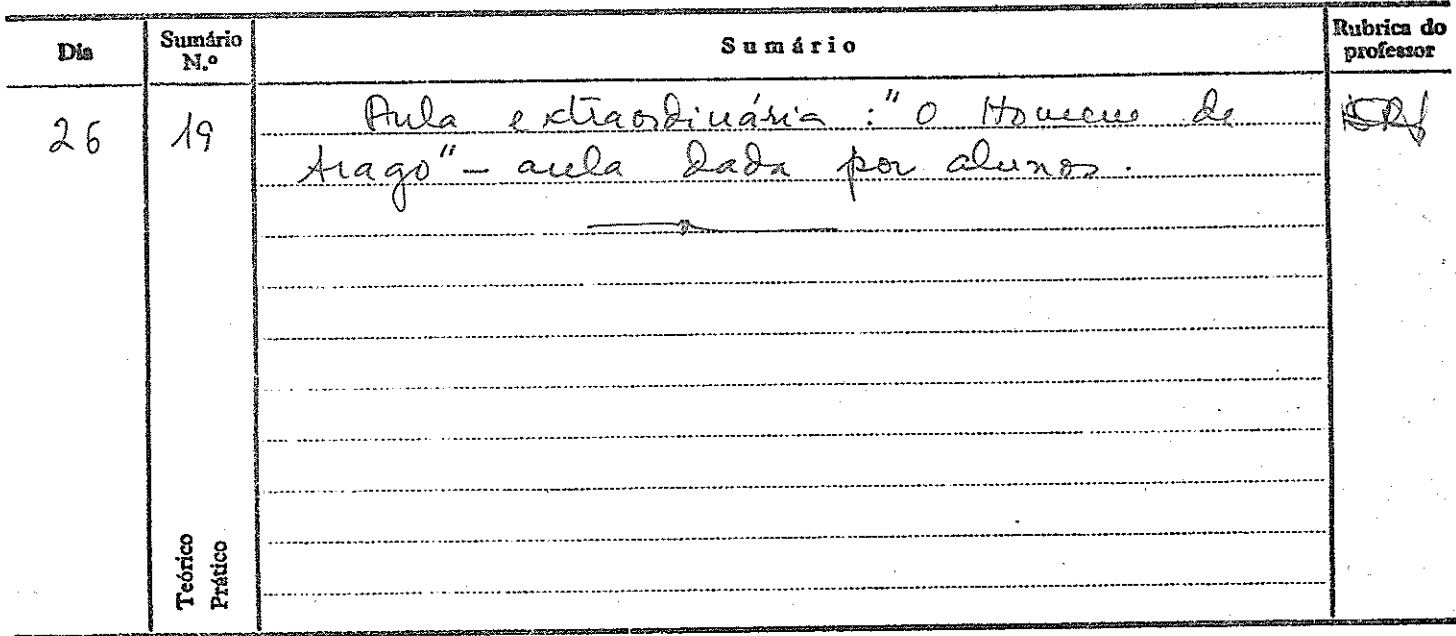 Dia
Sumário N.º
Sumário
Rubrica do professor
26
19
Aula extraordinária : "O Homem de
Arago" – aula dada por alunos.
Teórico
Prático